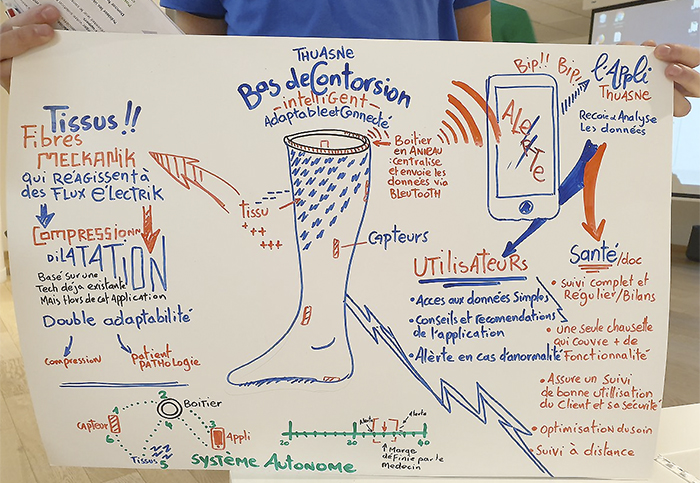 THUASNE
Bas de Contorsion
intelligent
Adaptable et Connecté
Tissus !!
Fibres
MECKANIK
qui RéAgissent à
des Flux éLectrik
Compression
DiLATATiON
Basé sur une
Tech déja existante
Mais Hors de cat Application
Double adaptabilité
compression
patient
PATHoLogie
tissu
+++
+++
Boitier
en ANNEAU
: centralise
et envoie les
données via
BLeuTOOTH
CAPTeurs
Bip!! Bip!
ALeRTe
l'Appli
THUASNE
Recoie et Analyse
Les données
UTiLisATeuRs
• Acces aux données Simples
• Conseils et recomendations
de l'application
• Alèrte en cas d'anormalité
Santé/doc
• suivi complet et
Régulier/Bilans
• une seule chauselle
qui couvre + de
Fonctionnalité
• Assure un Suivi
de bonne utilisation
du Client et sa sécurité
• Optimisation du soin
• Suivi à distance
1
2
Boitier
CAPTeuR
6
3
Appli
Tissus
5
4
SYSTÈME AUTONOME
20
30
40
Alerte
Alerte
Marge
définie par le
medecin